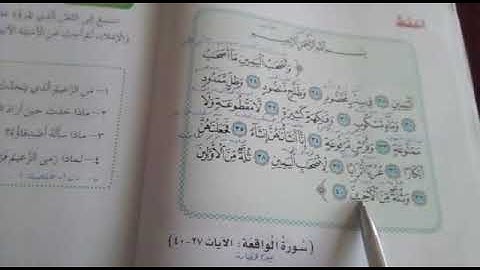 بسم الله الرحمن الرحيم
﴿ وَأَصْحَٰبُ الْيَمِينِ مَا أَصْحَٰبُ
الْيَمِينِ ٢٧ فِي سِدْرٍ مَّخْضُودٍ ٢٨ وَطَلْحٍ مَّنضُودٍ ٢٩ وَظِلٍّ مَّمْدُودٍ
٣٠ وَمَاءٍ مَّسْكُوبٍ ٣١ وَفَٰكِهَةٍ كَثِيرَةٍ ٣٢ لَّا مَقْطُوعَةٍ وَلَا
مَمْنُوعَةٍ ٣٣ وَفُرُشٍ مَّرْفُوعَةٍ ٣٤ إِنَّا أَنشَأْنَٰهُنَّ إِنشَاءً ٣٥ فَجَعَلْنَٰهُنَّ
أَبْكَارًا ٣٦ عُرُبًا أَتْرَابًا ٣٧ لِّأَصْحَٰبِ الْيَمِينِ ٣٨ ثُلَّةٌ مِّنَ الْأَوَّلِينَ
٣٩ وَثُلَّةٌ مِّنَ الْآخِرِينَ ٤٠ ﴾
(سُورَةُ الْوَاقِعَةِ: الآيَات ٢٧-٤٠)
١- مَنِ الزَّعِيمُ الَّذِي
٢- مَاذَا حَدَثَ حِينَ أَرَادَ
٣- مَاذَا سَأَلَهُ أَصْدِقَاؤُهُ
٤- لِمَاذَا